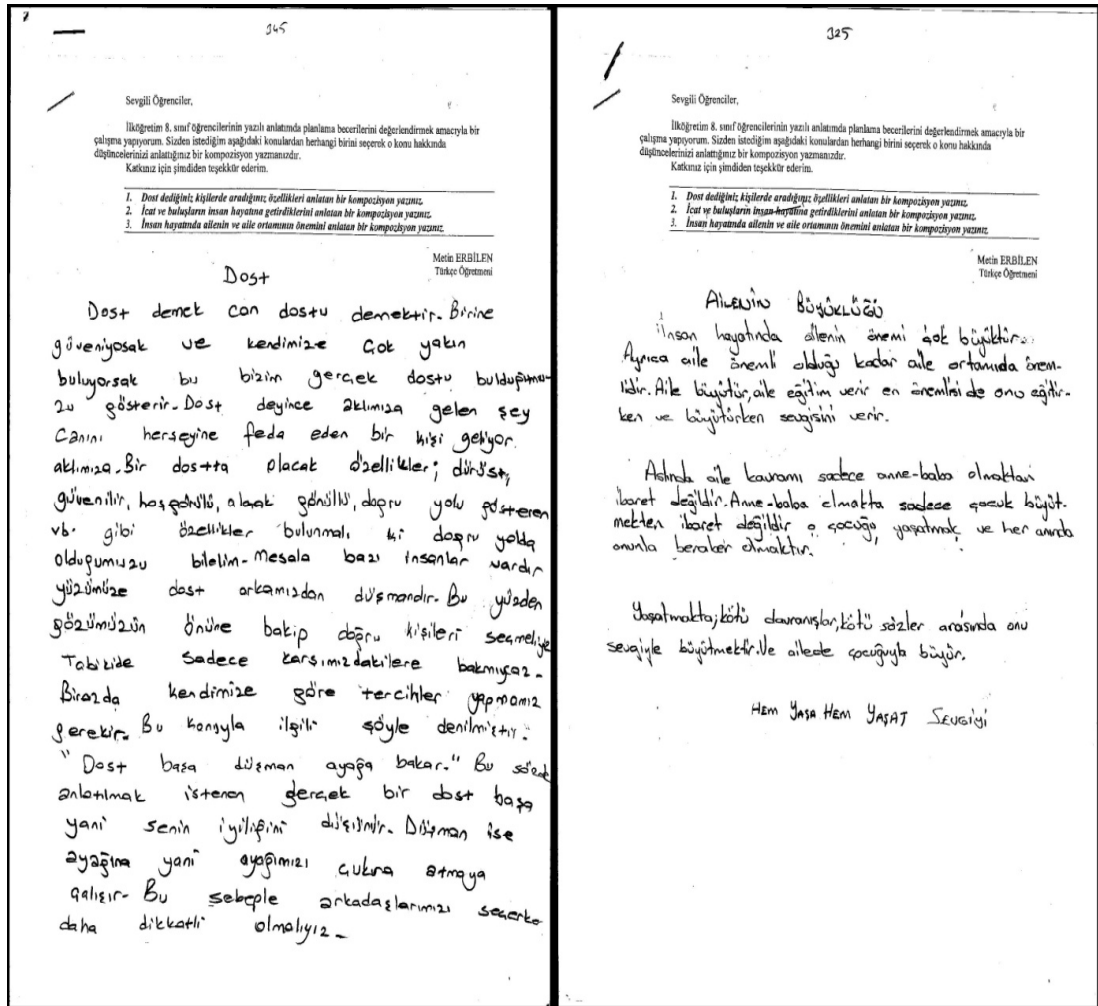 345
Sevgili Öğrenciler,
İlköğretim 8. sınıf öğrencilerinin yazılı anlatımda planlama becerilerini değerlendirmek amacıyla bir
çalışma yapıyorum. Sizden istediğim aşağıdaki konulardan herhangi birini seçerek o konu hakkında
düşüncelerinizi anlattığınız bir kompozisyon yazmanızdır.
Katkınız için şimdiden teşekkür ederim.
1. Dost dediğiniz kişilerde aradığınız özellikleri anlatan bir kompozisyon yazınız.
2. İcat ve buluşların insan hayatına getirdiklerini anlatan bir kompozisyon yazınız.
3. İnsan hayatında ailenin ve aile ortamının önemini anlatan bir kompozisyon yazınız.
Metin ERBİLEN
Türkçe Öğretmeni
Dost
Dost demek can dostu demektir. Birine
güveniyosak ve kendimize çok yakın
buluyorsak bu bizim gerçek dostu bulduğumu-
zu gösterir. Dost deyince aklımıza gelen şey
Canını herşeyine feda eden bir kişi geliyor.
aklımıza. Bir dostta olacak özellikler; dürüst,
güvenilir, hoşgörülü, alçak gönüllü, doğru yolu gösteren
vb. gibi özellikler bulunmalı ki doğru yolda
olduğumuzu bilelim. Mesala bazı insanlar vardır
yüzümüze dost arkamızdan düşmandır. Bu yüzden
gözümüzün önüne bakip doğru kişileri seçmeliyz
Tabikide sadece karşımızdakilere bakmıycaz.
Birazda kendimize göre tercihler yapmamız
gerekir. Bu konuyla ilgili şöyle denilmiştir:
"Dost başa düşman ayağa bakar." Bu sözde
anlatılmak istenen gerçek bir dost başa
yani senin iyiliğini düşünür. Düşman ise
ayağına yani ayağımızı çukura atmaya
çalışır. Bu sebeple arkadaşlarımızı seçerke
daha dikkatli olmalıyız.
325
Sevgili Öğrenciler,
İlköğretim 8. sınıf öğrencilerinin yazılı anlatımda planlama becerilerini değerlendirmek amacıyla bir
çalışma yapıyorum. Sizden istediğim aşağıdaki konulardan herhangi birini seçerek o konu hakkında
düşüncelerinizi anlattığınız bir kompozisyon yazmanızdır.
Katkınız için şimdiden teşekkür ederim.
1. Dost dediğiniz kişilerde aradığınız özellikleri anlatan bir kompozisyon yazınız.
2. İcat ve buluşların insan hayatına getirdiklerini anlatan bir kompozisyon yazınız.
3. İnsan hayatında ailenin ve aile ortamının önemini anlatan bir kompozisyon yazınız.
Metin ERBİLEN
Türkçe Öğretmeni
AİLENİN BÜYÜKLÜĞÜ
İnsan hayatında ailenin önemi çok büyüktür.
Ayrıca aile önemli olduğu kadar aile ortamıda önem-
lidir. Aile büyütür, aile eğitim verir en önemlisi de onu eğitir-
ken ve büyütürken sevgisini verir.
Aslında aile kavramı sadece anne-baba olmaktan
ibaret değildir. Anne-baba olmakta sadece çocuk büyüt-
mekten ibaret değildir o çocuğu, yaşatmak, ve her anında
onunla beraber olmaktır.
Yaşatmakta; kötü davranışlar, kötü sözler arasında onu
sevgiyle büyütmektir. Ve ailede çocuğuyla büyür.
HEM YAŞA HEM YAŞAT SEVGİYİ